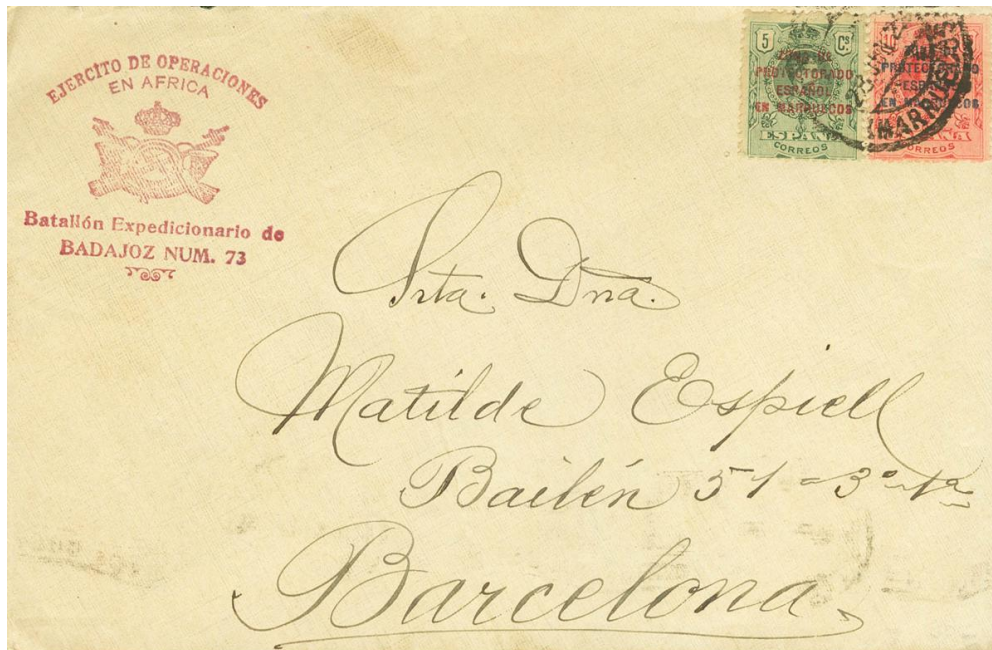 EJERCÍTO DE OPERACIONES
EN AFRICA
Batallón Expedicionario de
BADAJOZ NUM. 73
5 Cs.
ZONA DE
PROTECTORADO
ESPAÑOL
EN MARRUECOS
ESPAÑA
CORREOS
10
PROTECTORADO
EN MARRUECOS
CORREOS
(MARRUECOS)
Srta. Dna.
Matilde Espiell
Bailén 51 = 3º 1ª
Barcelona